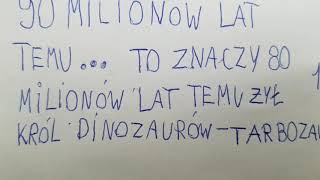 90 MILIONÓW LAT
TEMU... TO ZNACZY 80
MILIONÓW LAT TEMU ŻYŁ
KRÓL DINOZAURÓW-TARBOZAU